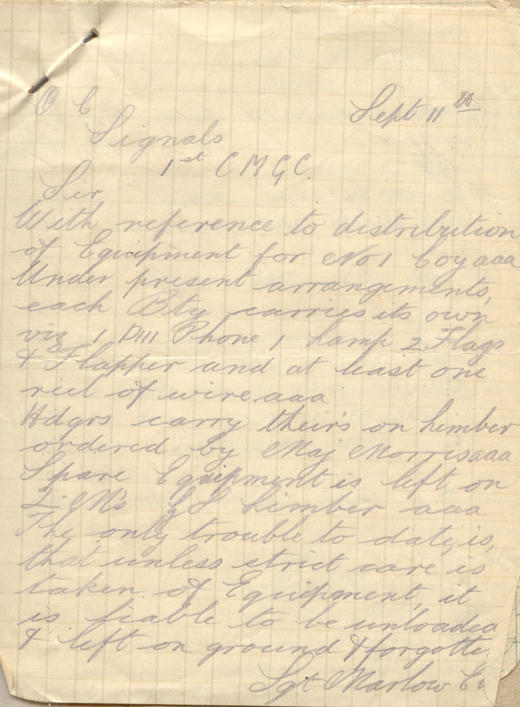 O C
Sept 11th
Signals
1st C M G C.
Sir,
With reference to distribution
of Equipment for No 1 Coy aaa
Under present arrangements,
each Bty carries its own
viz 1 DIII Phone 1 Lamp 2 Flags
& Flapper and at least one
reel of wire aaa
Hdqrs carry their's on Limber
ordered by Maj Morris aaa
Spare Equipment is left on
Q.M's GS Limber aaa
The only trouble to date, is,
that unless strict care is
taken of Equipment, it
is liable to be unloaded
& left on ground & forgotte
Sgt Marlow